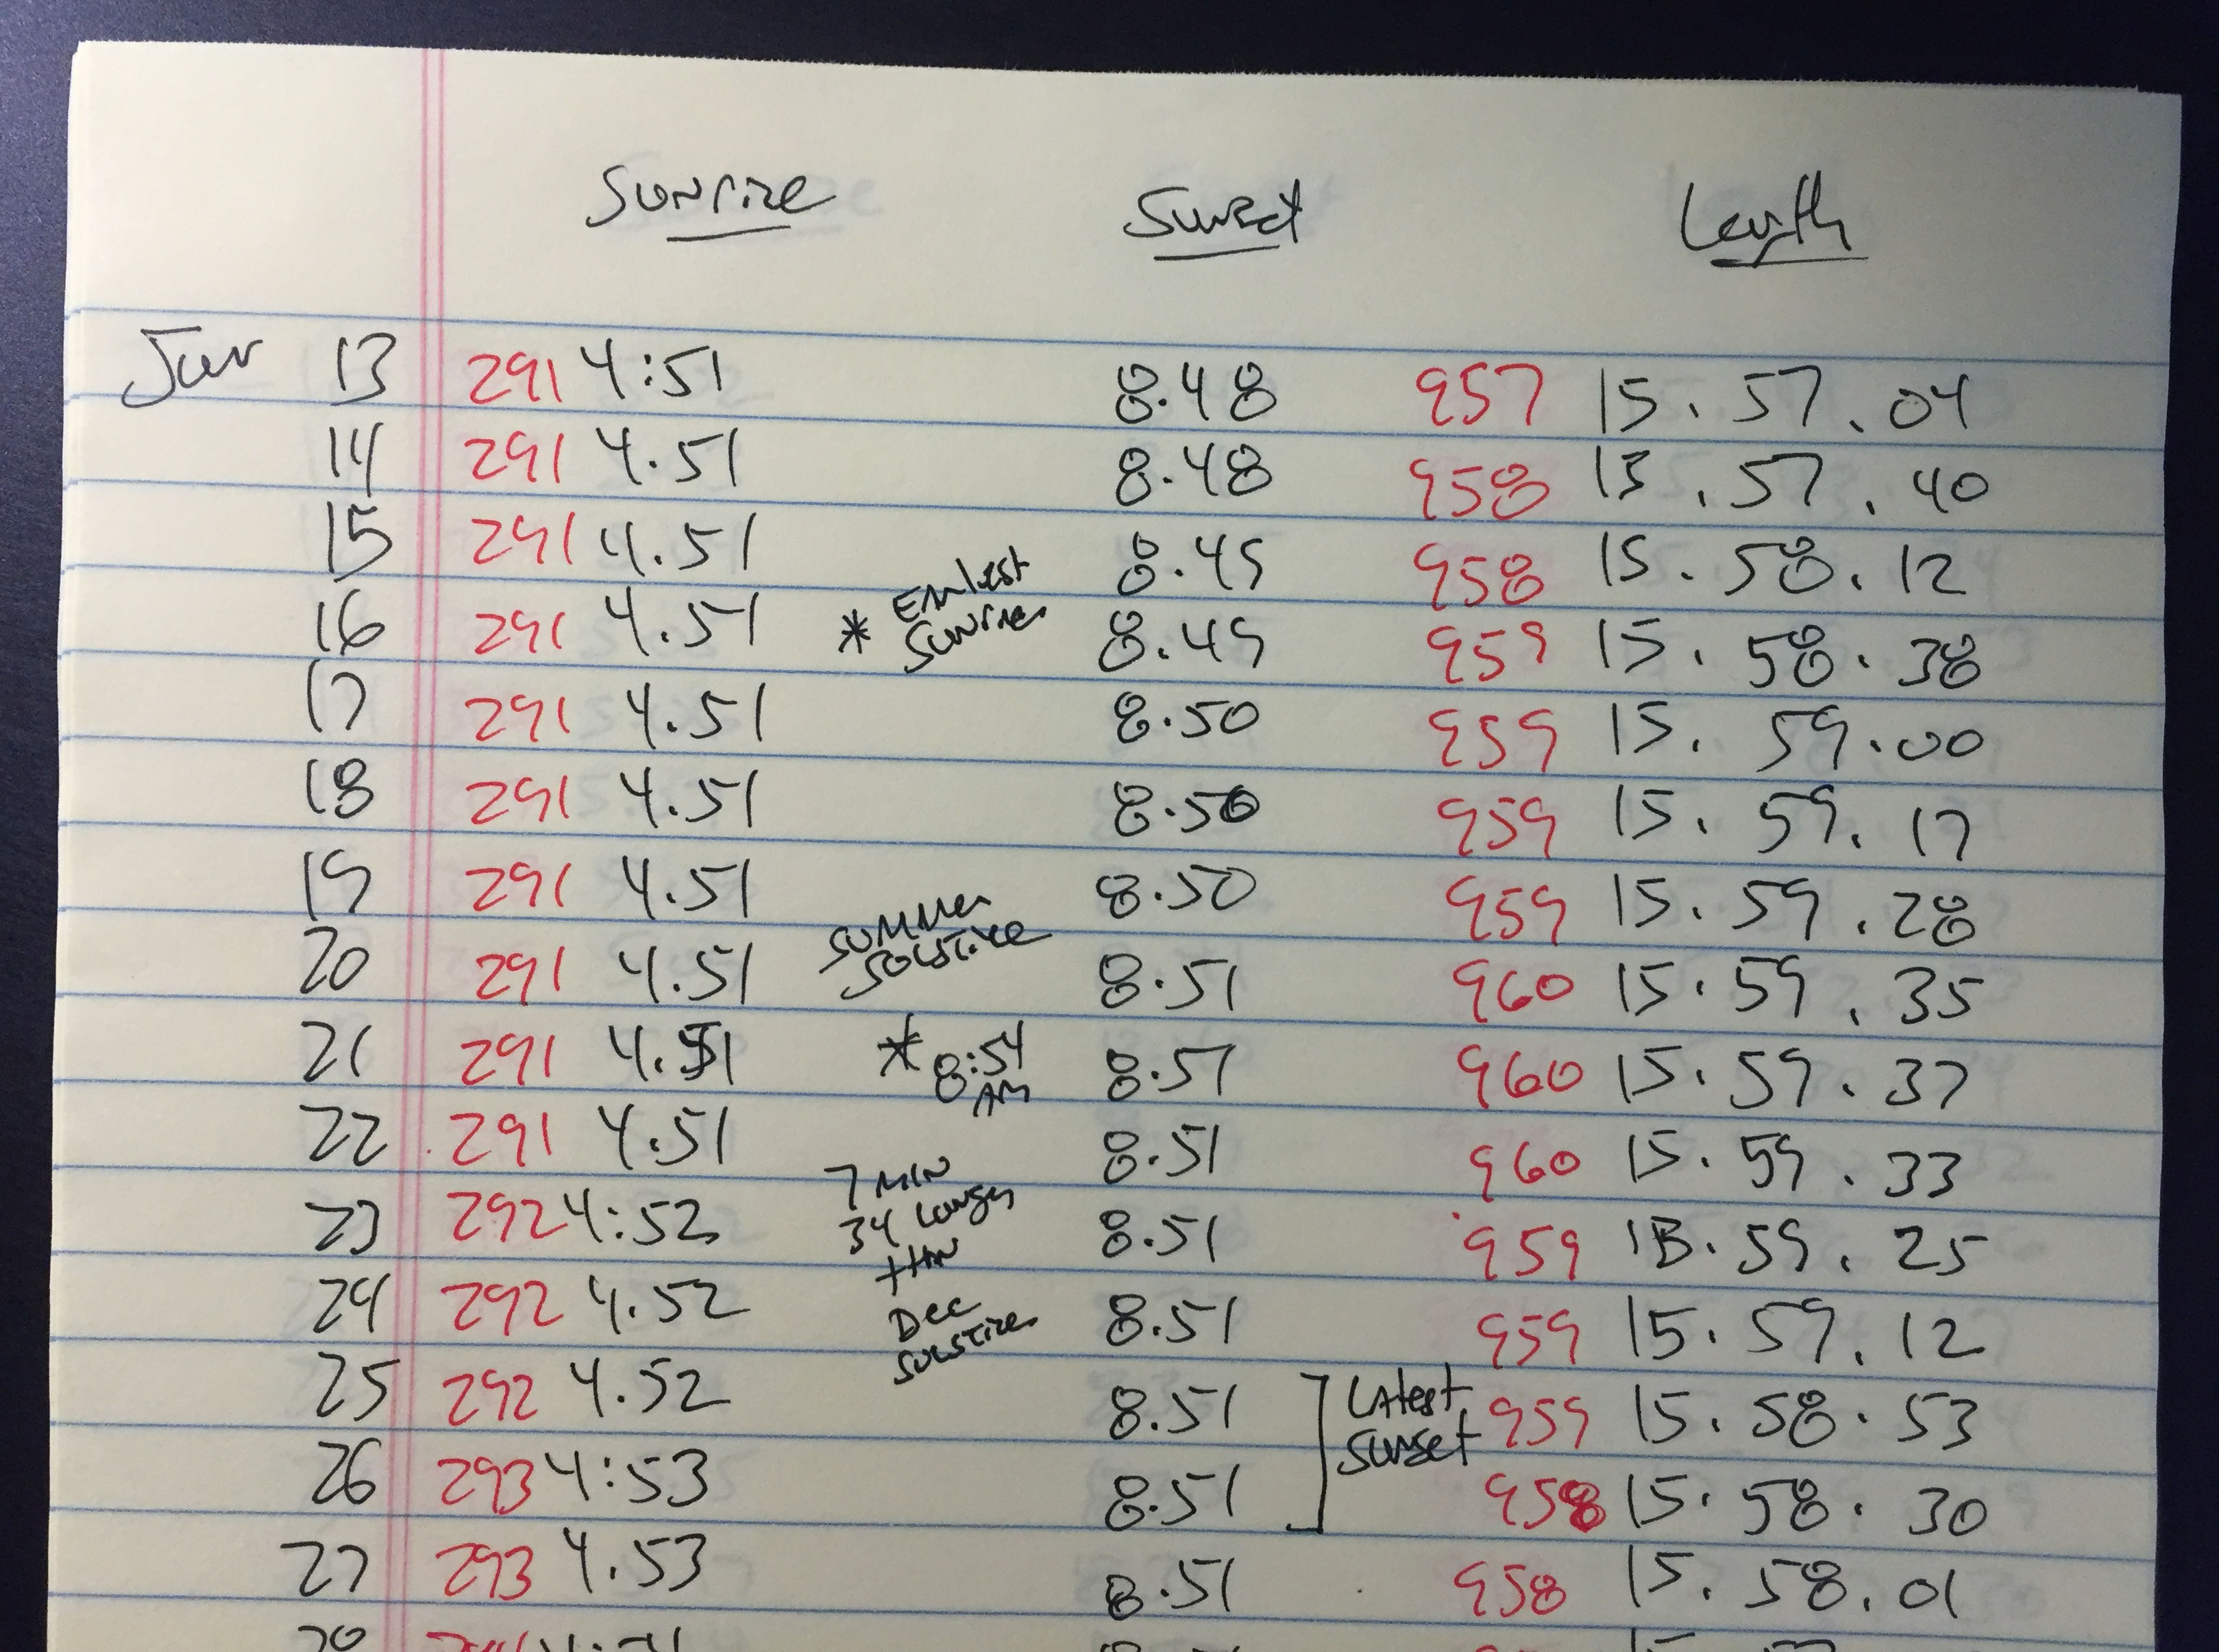 Sunrize Sunset Length
Jun 13 291 4:51 8.48 957 15.57.04
14 291 4.51 8.48 958 15.57.40
15 291 4.51 8.49 958 15.58.12
16 291 4.51 * Earliest Sunrise 8.49 959 15.58.38
17 291 4.51 8.50 959 15.59.00
18 291 4.51 8.50 959 15.59.17
19 291 4.51 8.50 959 15.59.28
20 291 4.51 Summer Solstice 8.51 960 15.59.35
21 291 4.51 * 8:54 AM 8.51 960 15.59.37
22 291 4.51 8.51 960 15.59.33
23 292 4:52 7 MIN 34 Longer than 8.51 959 15.59.25
24 292 4.52 Dec Solstice 8.51 959 15.59.12
25 292 4.52 8.51 Latest 959 15.58.53
26 293 4:53 8.51 Sunset 958 15.58.30
27 293 4.53 8.51 958 15.58.01